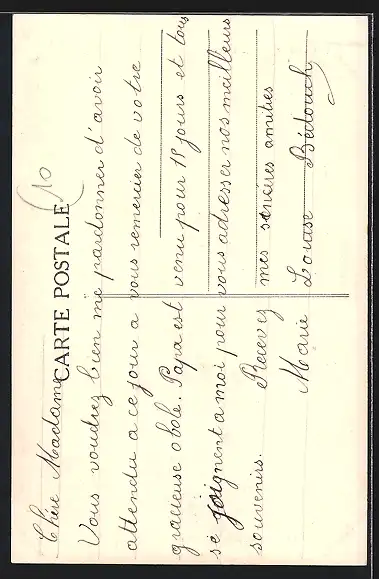 10
CARTE POSTALE
Chère Madame
Vous voudrez bien me pardonner d'avoir
attendu a ce jour a vous remercier de votre
gracieuse obole. Papa est venu pour 15 jours et tous
se joignent a moi pour vous adresser nos meilleurs
souvenirs. Recevez mes sincères amitiés
Marie Louise Bédouch